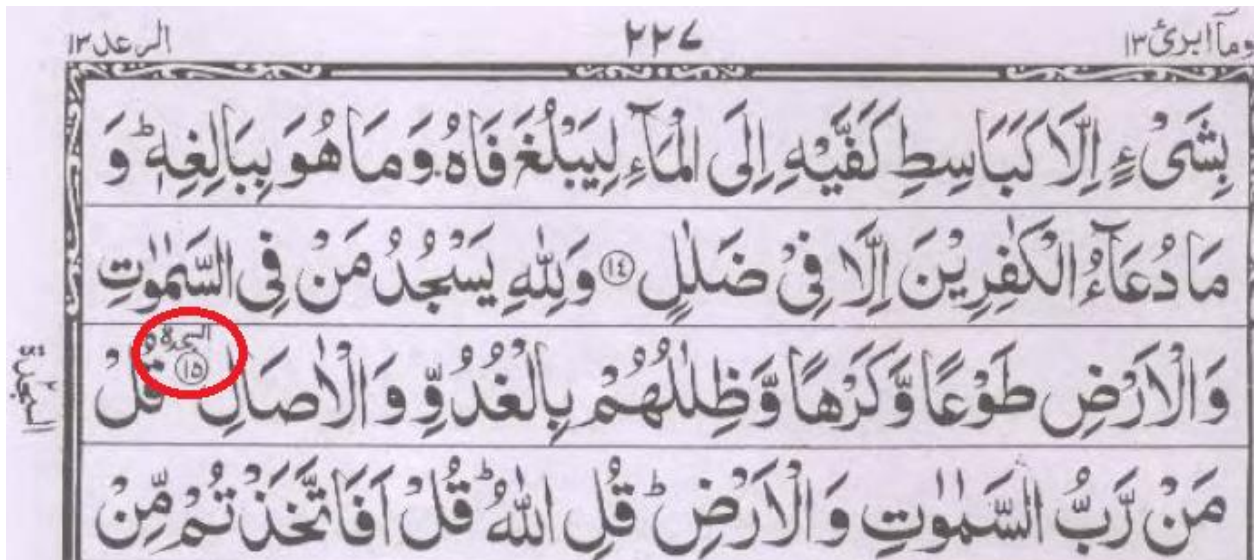 وماۤابرئ ١٣ ٢٢٧ الرعد ١٣
بِشَىْءٍ اِلَّا كَبَاسِطِ كَفَّيْهِ اِلَى الْمَآءِ لِيَبْلُغَ فَاهُ وَمَا هُوَ بِبَالِغِهٖؕ وَ
مَا دُعَآءُ الْكٰفِرِيْنَ اِلَّا فِىْ ضَلٰلٍ ﴿١٤﴾ وَلِلّٰهِ يَسْجُدُ مَنْ فِى السَّمٰوٰتِ
وَالْاَرْضِ طَوْعًا وَّكَرْهًا وَّظِلٰلُهُمْ بِالْغُدُوِّ وَالْاٰصَالِ السجدة ﴿١٥﴾ قُلْ
مَنْ رَّبُّ السَّمٰوٰتِ وَالْاَرْضِؕ قُلِ اللّٰهُؕ قُلْ اَفَاتَّخَذْتُمْ مِّنْ